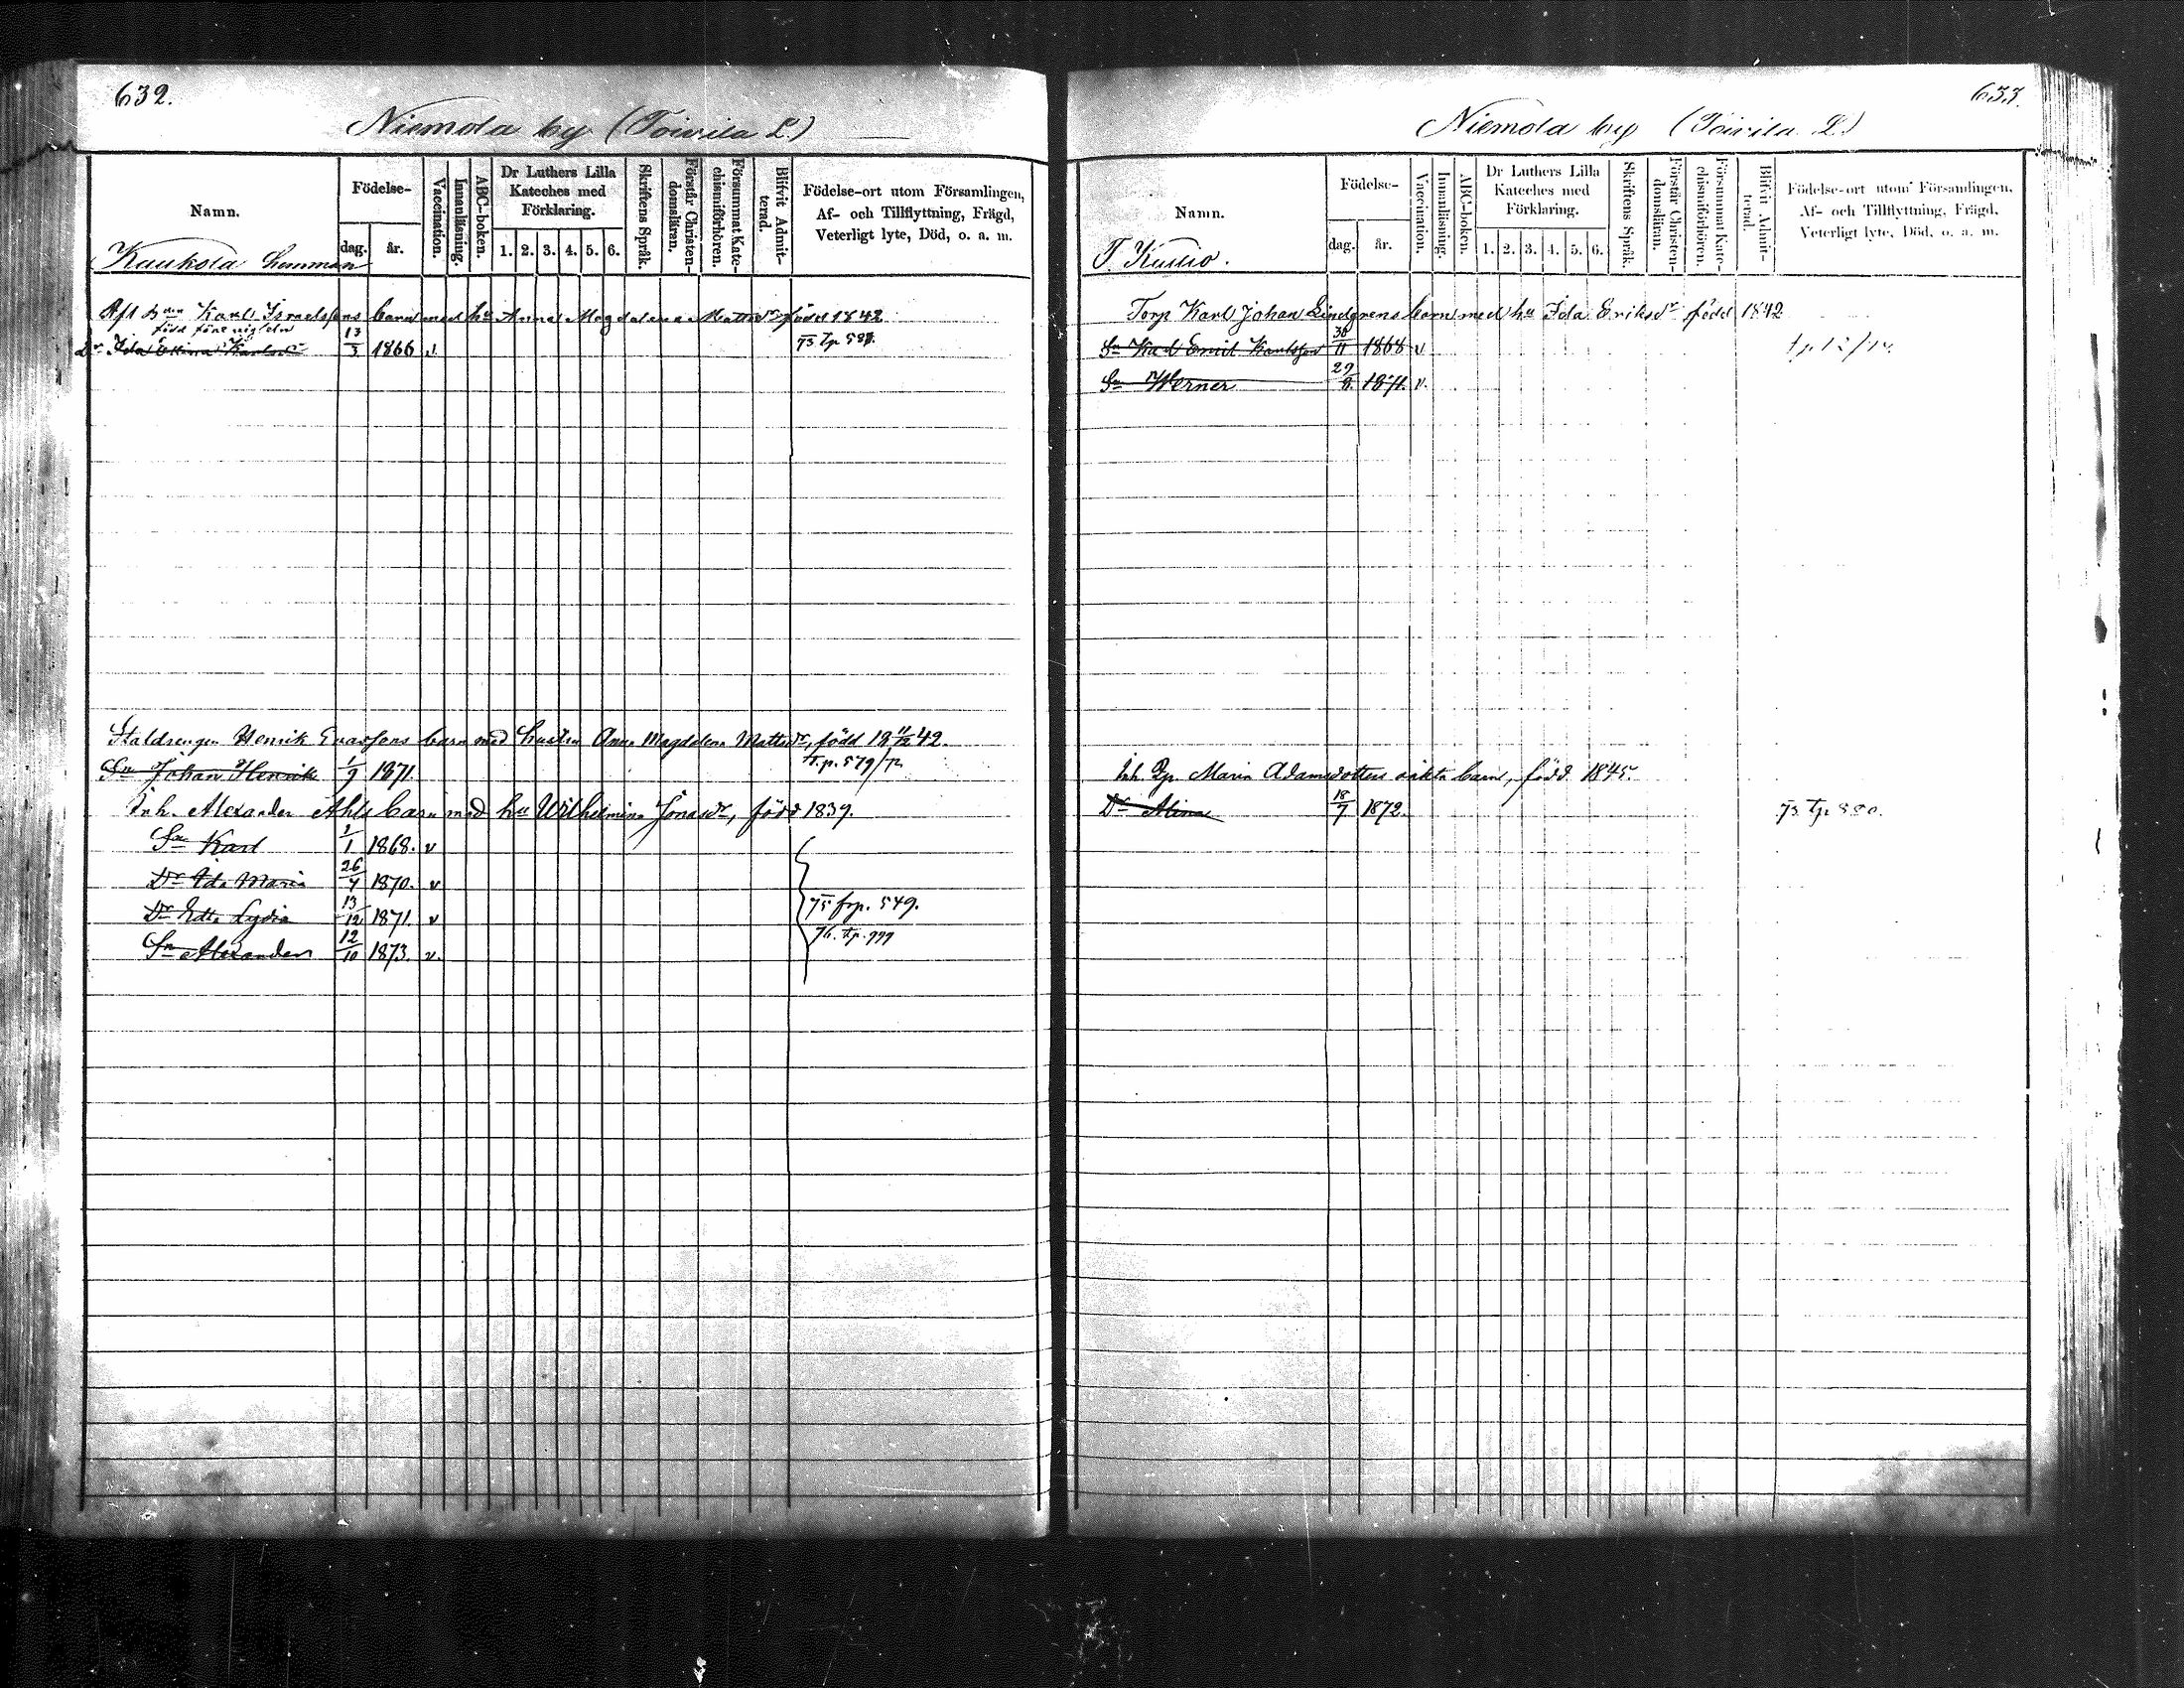 632.
Niemola by (Toivila L.)
Namn.
Födelse-
dag.
år.
Vaccination.
Innanläsning.
ABC-boken.
Dr Luthers Lilla
Kateches med
Förklaring.
1. 2. 3. 4. 5. 6.
Skriftens Språk.
Förstår Christen-
domsläran.
Försummat Kate-
chismiförhören.
Blifvit Admit-
terad.
Födelse-ort utom Församlingen,
Af- och Tillflyttning, Frägd,
Veterligt lyte, Död, o. a. m.
Kaukola hemman
Karl Israelssons barn med hu Anna Magdalena Mattsdr född 1842
född före
Dr Ida Karlsdr 13/3 1866 v.
Henrik barn med hustru Anna Magdalena Mattsdr, född 18 42.
Sn Johan Henrik 1/9 1871. tp. 579/72
Inh. Alexander Ahls barn med hu Wilhelmina Jonasdr, född 1839.
Sn Karl 1/1 1868. v
Dr Ida Maria 26/4 1870. v
Dr Edla Lydia 13/12 1871. v 75 frp. 549.
Sn Alexander 12/10 1873. v. 76. tp. 999
633.
Niemola by (Toivila L.)
Namn.
Födelse-
dag.
år.
Vaccination.
Innanläsning.
ABC-boken.
Dr Luthers Lilla
Kateches med
Förklaring.
1. 2. 3. 4. 5. 6.
Skriftens Språk.
Förstår Christen-
domsläran.
Försummat Kate-
chismiförhören.
Blifvit Admit-
terad.
Födelse-ort utom Församlingen,
Af- och Tillflyttning, Frägd,
Veterligt lyte, Död, o. a. m.
T. Kuusio.
Torp. Karl Johan Lindgrens barn med hu Ida Eriksdr född 1842
Sn Karl Emil Karlsson 30/11 1868 v
Sn Werner 29/8. 1871. v.
Inh. Pg. Maria Adamsdotters oäkta barn, född 1845.
Dr Alina 18/7 1872. 73 tp 880.